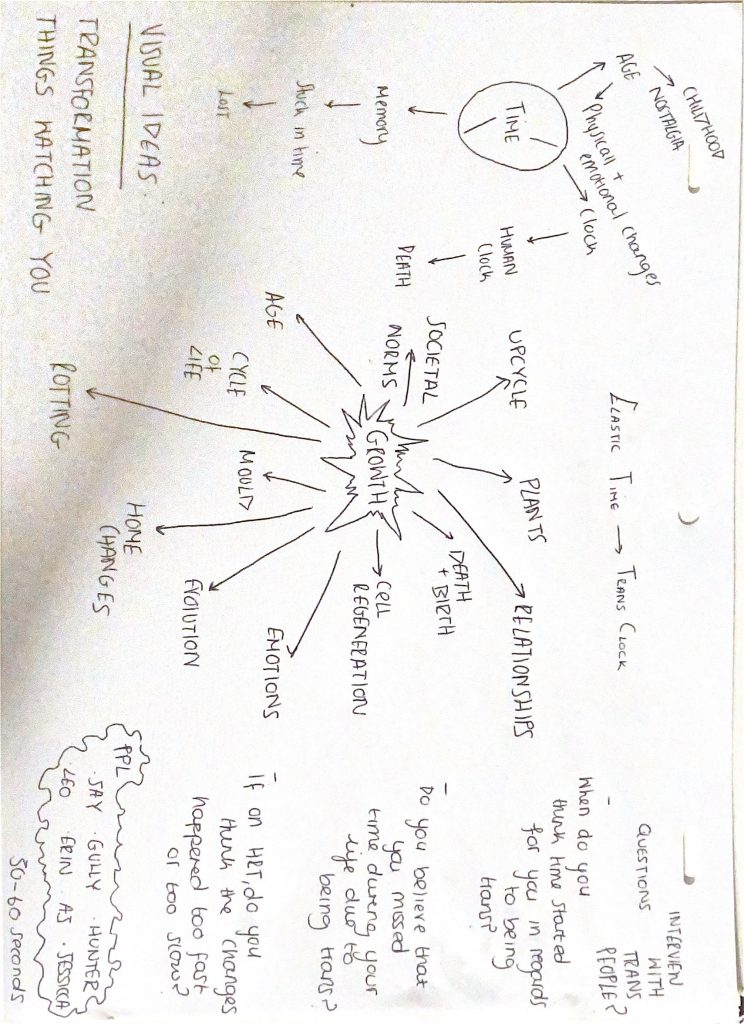 CHILDHOOD
NOSTALGIA
AGE
Physicall +
emotional changes
TIME
Clock
HUMAN
Clock
DEATH
Memory
Stuck in time
LOST
VISUAL IDEAS:
TRANSFORMATION
THINGS WATCHING YOU
ELASTIC TIME → TRANS CLOCK
GROWTH
UPCYCLE
SOCIETAL
NORMS
PLANTS
RELATIONSHIPS
DEATH
+ BIRTH
CELL
REGENERATION
EMOTIONS
EVOLUTION
HOME
CHANGES
MOULD
ROTTING
CYCLE
OF
LIFE
AGE
INTERVIEW
WITH
TRANS
PEOPLE?
QUESTIONS
-
When do you
think time started
for you in regards
to being
trans?
- Do you believe that
you missed
time during your
life due to
being trans?
- If on HRT, do you
think the changes
happened too fast
or too slow?
PPL
· JAY · GULLY · HUNTER
· LEO ERIN AJ · JESSICA
50-60 seconds